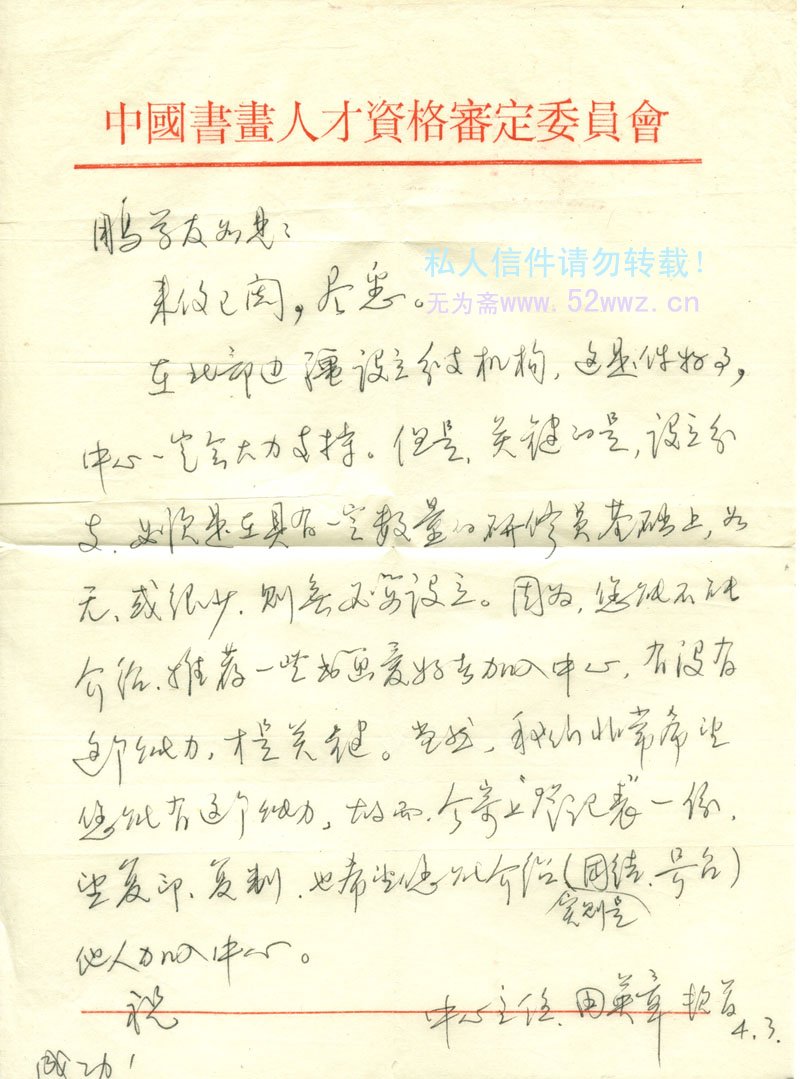 中國書畫人才資格審定委員會
鹏学友如见：
私人信件请勿转载！
来信已阅，尽悉。
无为斋www.52wwz.cn
在北部边疆设立分支机构，这是件好事，
中心一定会大力支持。但是，关键的是，设立分
支，必须是在具有一定数量的研修员基础上，如
无、或很少，则无必要设立。因为，您能不能
介绍、推荐一些书画爱好者加入中心，有没有
这个能力，才是关键。当然，我们非常希望
您能有这个能力，故而，今寄上“登记表”一份，
望复印、复制，也希望您能介绍（实则是团结、号召）
他人加入中心。
祝
中心主任、周英章 顿首
4.3.
成功！